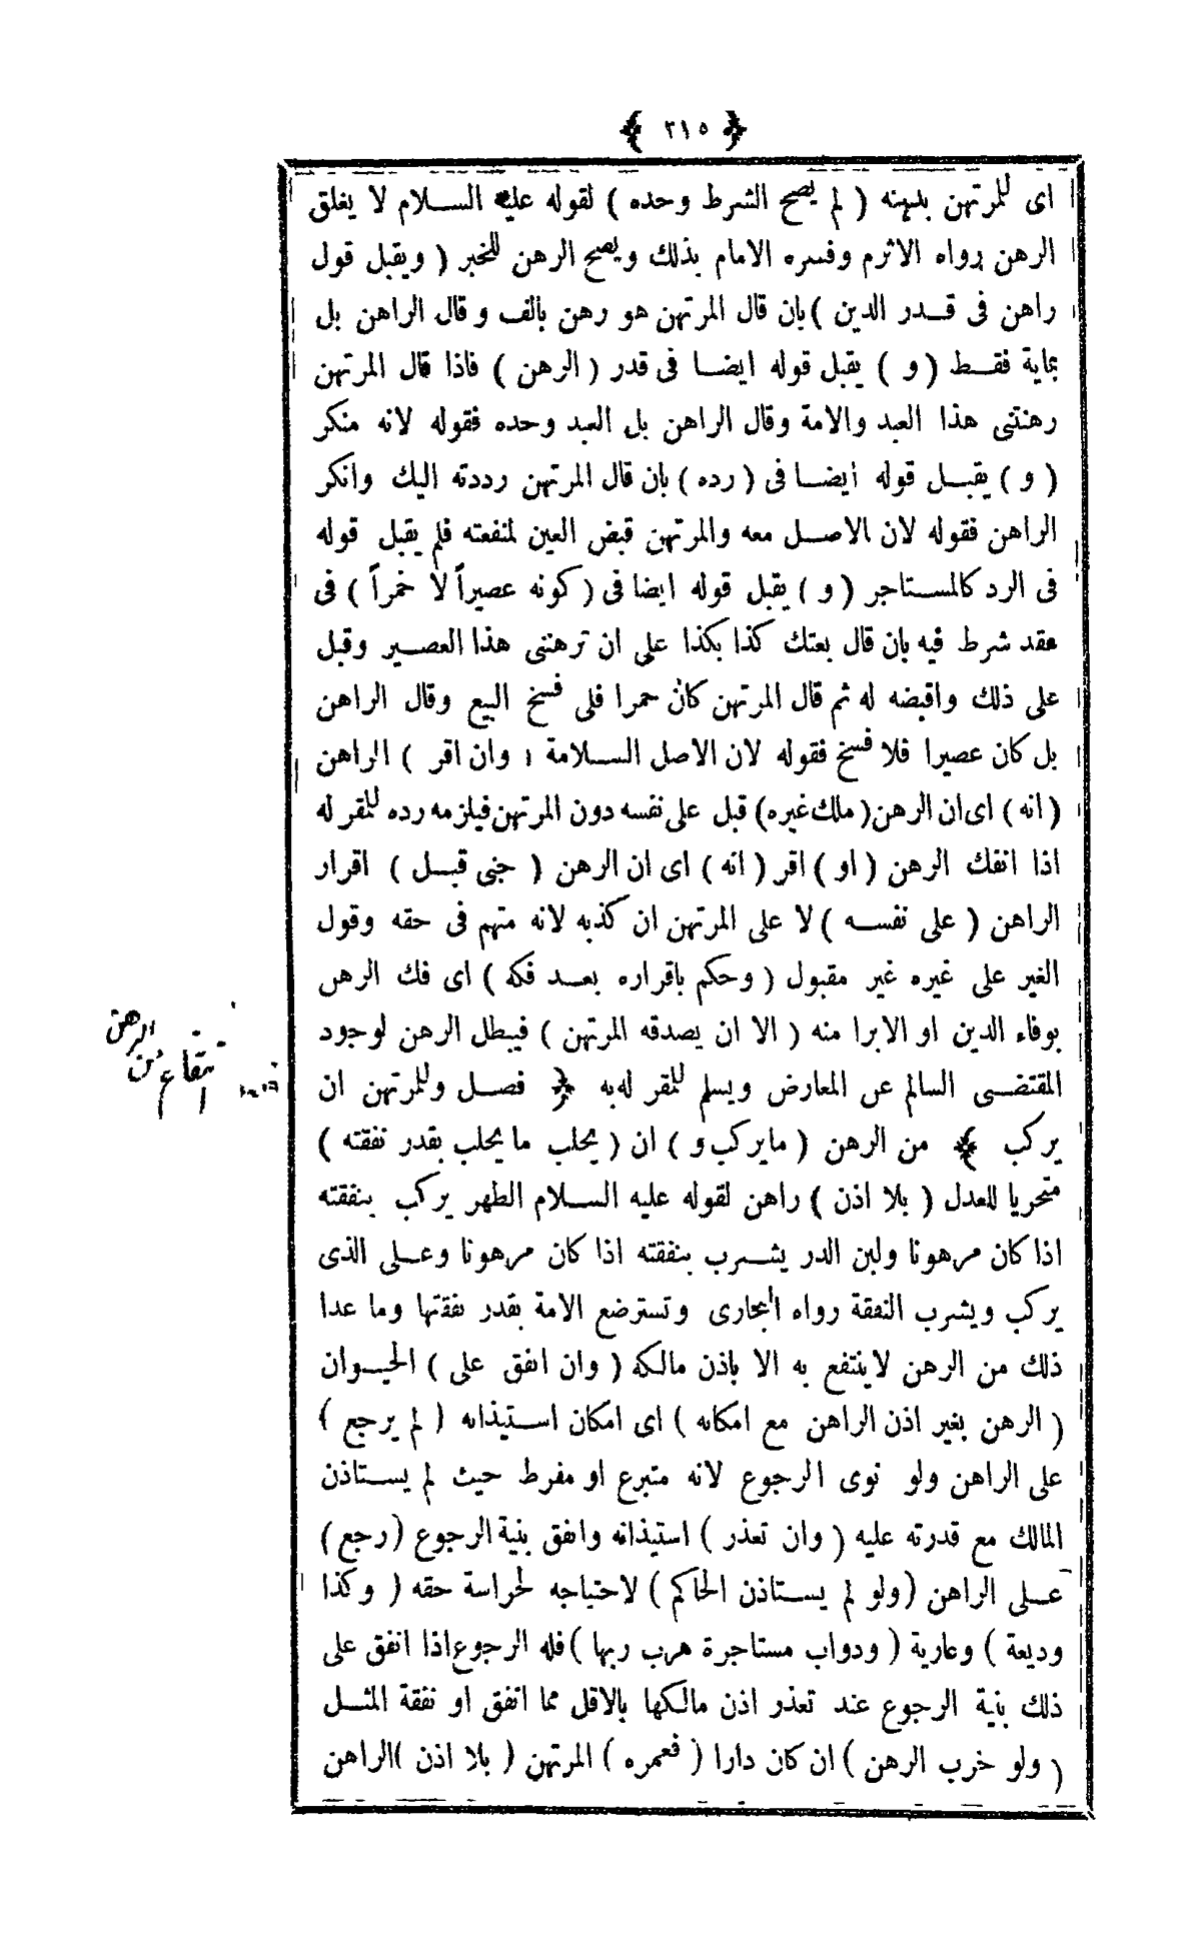 ﴿ ٣١٥ ﴾
اى للمرتهن بدينه ( لم يصح الشرط وحده ) لقوله عليه السلام لا يغلق
الرهن رواه الاثرم وفسره الامام بذلك ويصح الرهن للخبر ( ويقبل قول
راهن فى قدر الدين ) بان قال المرتهن هو رهن بالف وقال الراهن بل
بماية فقط ( و ) يقبل قوله ايضا فى قدر ( الرهن ) فاذا قال المرتهن
رهنتنى هذا العبد والامة وقال الراهن بل العبد وحده فقوله لانه منكر
( و ) يقبل قوله ايضا فى ( رده ) بان قال المرتهن رددته اليك وانكر
الراهن فقوله لان الاصل معه والمرتهن قبض العين لمنفعته فلم يقبل قوله
فى الرد كالمستاجر ( و ) يقبل قوله ايضا فى ( كونه عصيراً لا خمراً ) فى
عقد شرط فيه بان قال بعتك كذا بكذا على ان ترهننى هذا العصير وقبل
على ذلك واقبضه له ثم قال المرتهن كان خمرا فلى فسخ البيع وقال الراهن
بل كان عصيرا فلا فسخ فقوله لان الاصل السلامة ( وان اقر ) الراهن
( انه ) اى ان الرهن ( ملك غيره ) قبل على نفسه دون المرتهن فيلزمه رده للمقر له
اذا انفك الرهن ( او ) اقر ( انه ) اى ان الرهن ( جنى قبل ) اقرار
الراهن ( على نفسه ) لا على المرتهن ان كذبه لانه متهم فى حقه وقول
الغير على غيره غير مقبول ( وحكم باقراره بعد فكه ) اى فك الرهن
بوفاء الدين او الابرا منه ( الا ان يصدقه المرتهن ) فيبطل الرهن لوجود
المقتضى السالم عن المعارض ويسلم للمقر له به ﴿ فصل وللمرتهن ان
يركب ﴾ من الرهن ( ما يركب و ) ان ( يحلب ما يحلب بقدر نفقته )
متحريا للعدل ( بلا اذن ) راهن لقوله عليه السلام الظهر يركب بنفقته
اذا كان مرهونا ولبن الدر يشرب بنفقته اذا كان مرهونا وعلى الذى
يركب ويشرب النفقة رواه البخارى وتسترضع الامة بقدر نفقتها وما عدا
ذلك من الرهن لا ينتفع به الا باذن مالكه ( وان انفق على ) الحيوان
( الرهن بغير اذن الراهن مع امكانه ) اى امكان استيذانه ( لم يرجع )
على الراهن ولو نوى الرجوع لانه متبرع او مفرط حيث لم يستاذن
المالك مع قدرته عليه ( وان تعذر ) استيذانه وانفق بنية الرجوع ( رجع )
على الراهن ( ولو لم يستاذن الحاكم ) لاحتياجه لحراسة حقه ( وكذا
وديعة ) وعارية ( ودواب مستاجرة هرب ربها ) فله الرجوع اذا انفق على
ذلك بنية الرجوع عند تعذر اذن مالكها بالاقل مما انفق او نفقة المثل
( ولو خرب الرهن ) ان كان دارا ( فعمره ) المرتهن ( بلا اذن ) الراهن
انتفاع
الرهن